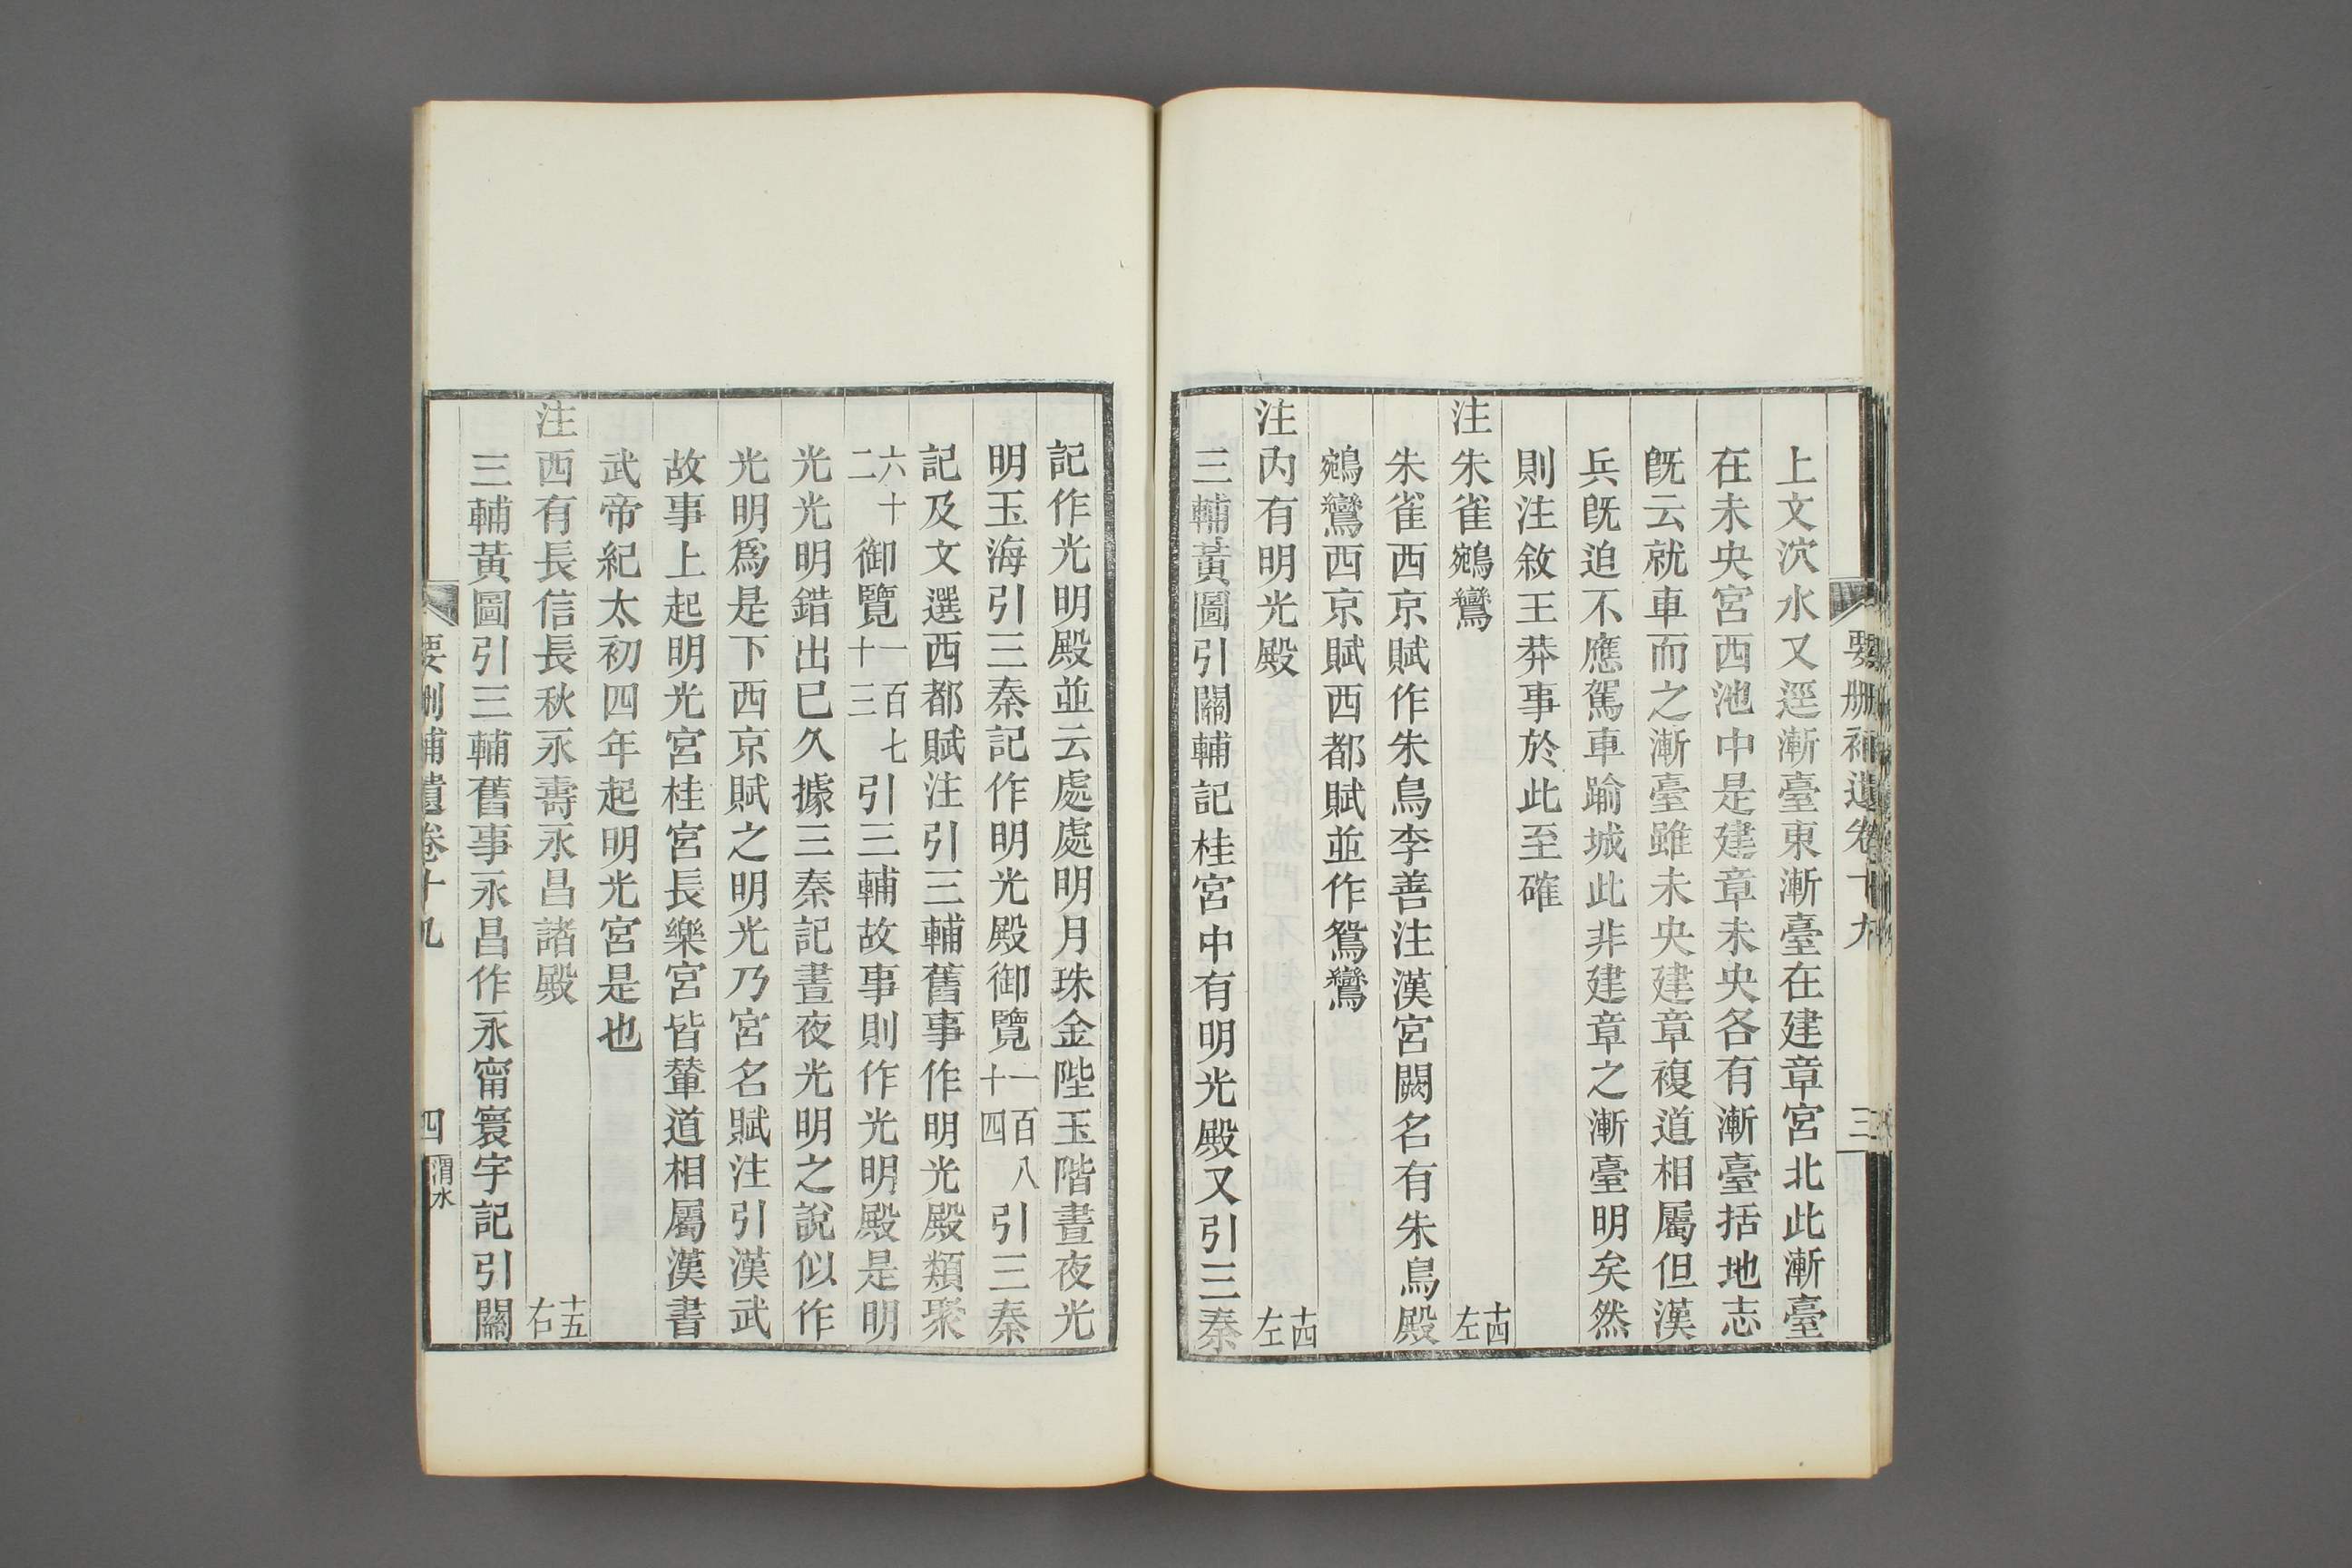 要刪補遺卷十九 三
上文泬水又逕漸臺東漸臺在建章宮北此漸臺
在未央宮西池中是建章未央各有漸臺括地志
旣云就車而之漸臺雖未央建章複道相屬但漢
兵旣迫不應駕車踰城此非建章之漸臺明矣然
則注敘王莽事於此至確
注朱雀鵷鸞 十四左
朱雀西京賦作朱鳥李善注漢宮闕名有朱鳥殿
鵷鸞西京賦西都賦並作鴛鸞
注內有明光殿 十四左
三輔黃圖引關輔記桂宮中有明光殿又引三秦
記作光明殿並云處處明月珠金陛玉階晝夜光
明玉海引三秦記作明光殿御覽一百八十四引三秦
記及文選西都賦注引三輔舊事作明光殿類聚
六十二御覽一百七十三引三輔故事則作光明殿是明
光光明錯出已久據三秦記晝夜光明之說似作
光明爲是下西京賦之明光乃宮名賦注引漢武
故事上起明光宮桂宮長樂宮皆輦道相屬漢書
武帝紀太初四年起明光宮是也
注西有長信長秋永壽永昌諸殿 十五右
三輔黃圖引三輔舊事永昌作永甯寰宇記引關
要刪補遺卷十九 四 渭水